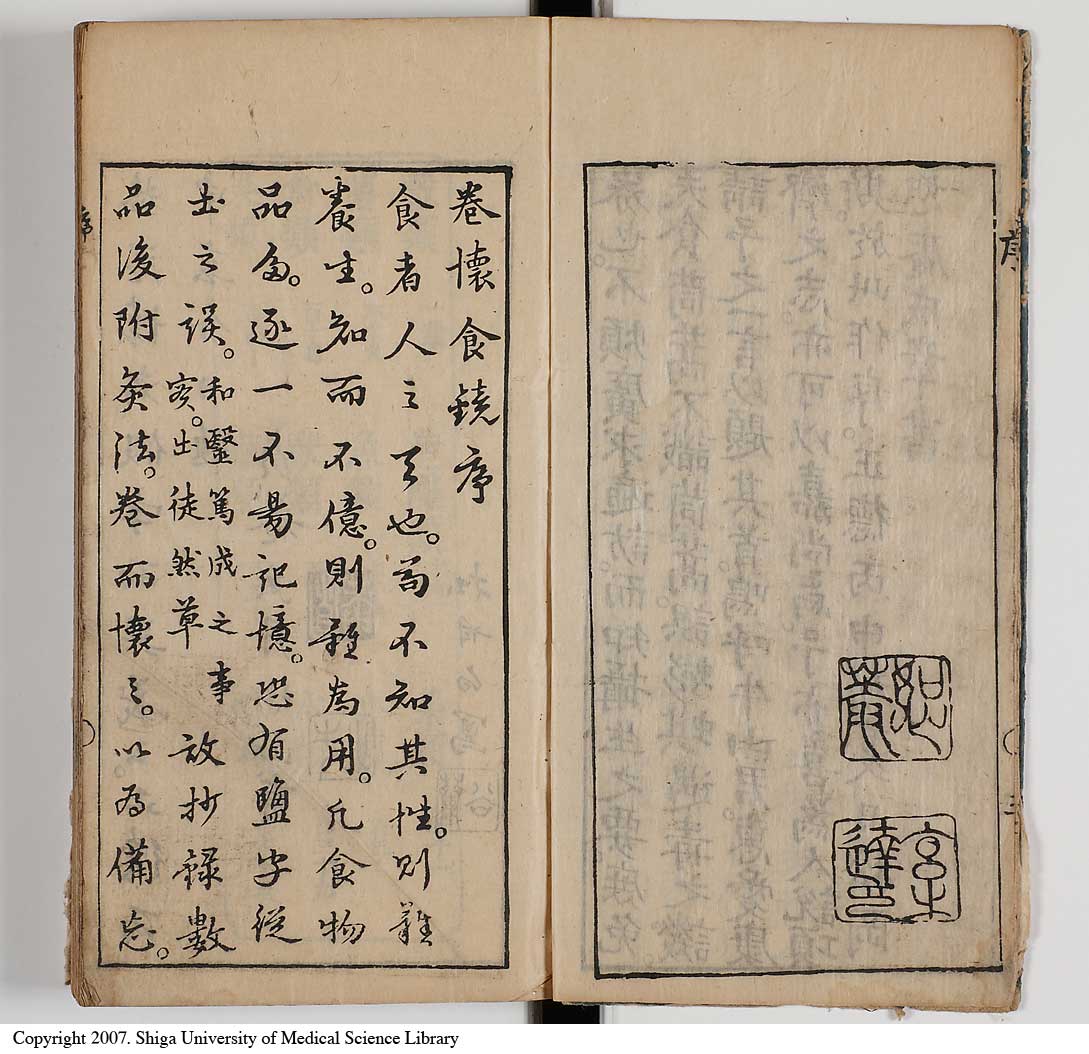 序
卷懷食鏡序
食者人之天也。苟不知其性。則難
養生。知而不億。則難為用。凡食物
品多。逐一不易記憶。恐有鹽字從
土之誤。和醫篤成之事實。出徒然草故抄錄數
品後附灸法。卷而懷之。以為備忘。
序